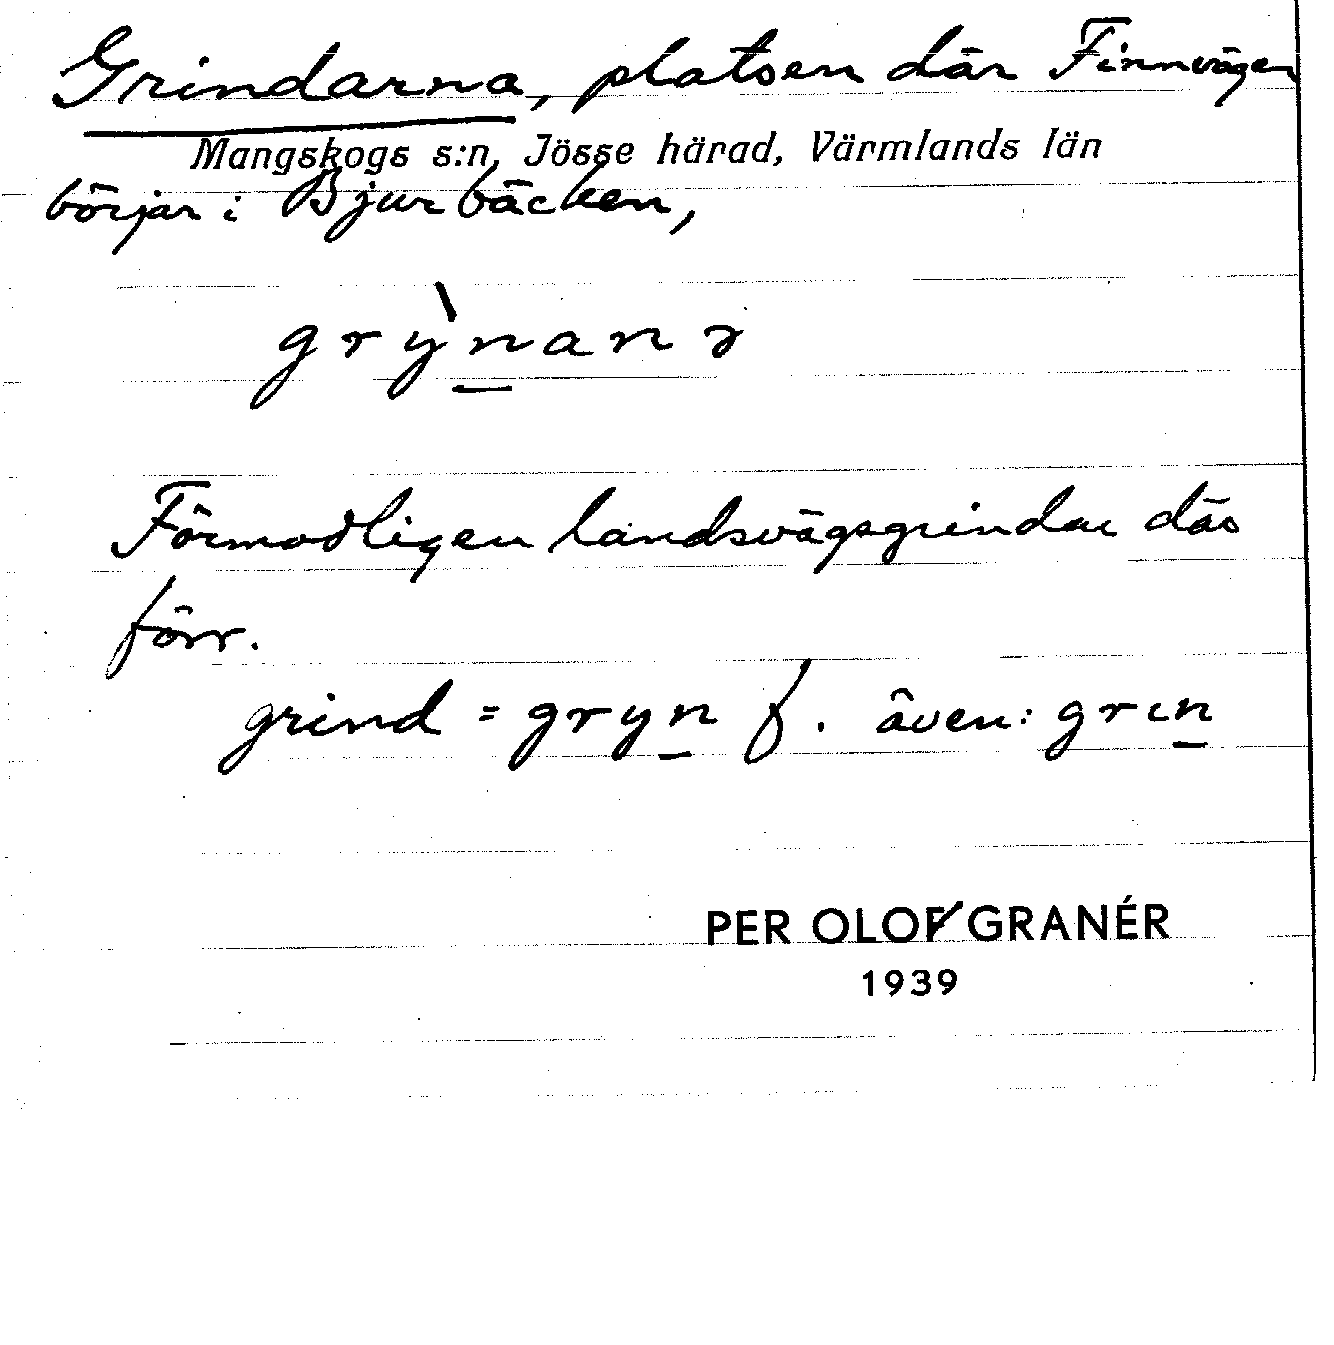 Grindarna, platsen där Finnvägen
Mangskogs s:n, Jösse härad, Värmlands län
börjar i Bjurbäcken,
grỳn̲anə
Förmodligen landsvägsgrindar där
förr.
grind = gryn̲ f. även: grın̲
PER OLOF GRANÉR
1939